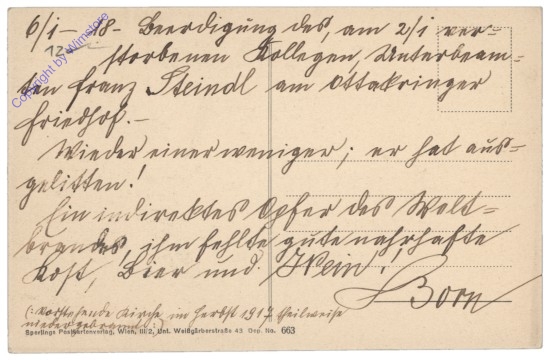 6/I - 18 - Beerdigung des, am 2/I ver-
12
storbenen Kollegen, Unterbeam-
ten Franz Steindl am Ottakringer
Friedhof.-
Wieder einer weniger; er hat aus-
gelitten!
Ein indirektes Opfer des Welt-
brandes, ihm fehlte gute nahrhafte
Kost, Bier und Wein!
Born
(:Vorstehende Kirche im Herbst 1917 theilweise
niedergebrannt:)
Sperlings Postkartenverlag, Wien, III/2, Unt. Weißgärberstraße 43 Dep. No. 663
Copyright by Wimstore